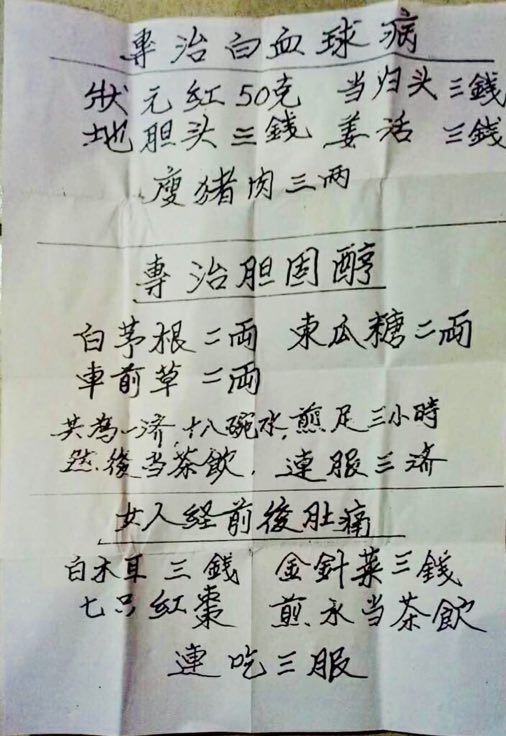 專治白血球病
狀元紅50克 当归头三錢
地胆头三錢 姜活 三錢
瘦猪肉三两
專治胆固醇
白茅根二両 東瓜糖二両
車前草二両
共為一济,十八碗水,煎足三小時
然後当茶飲,連服三济
女人経前後肚痛
白木耳三錢 金針菜三錢
七只紅棗 煎水当茶飲
連吃三服